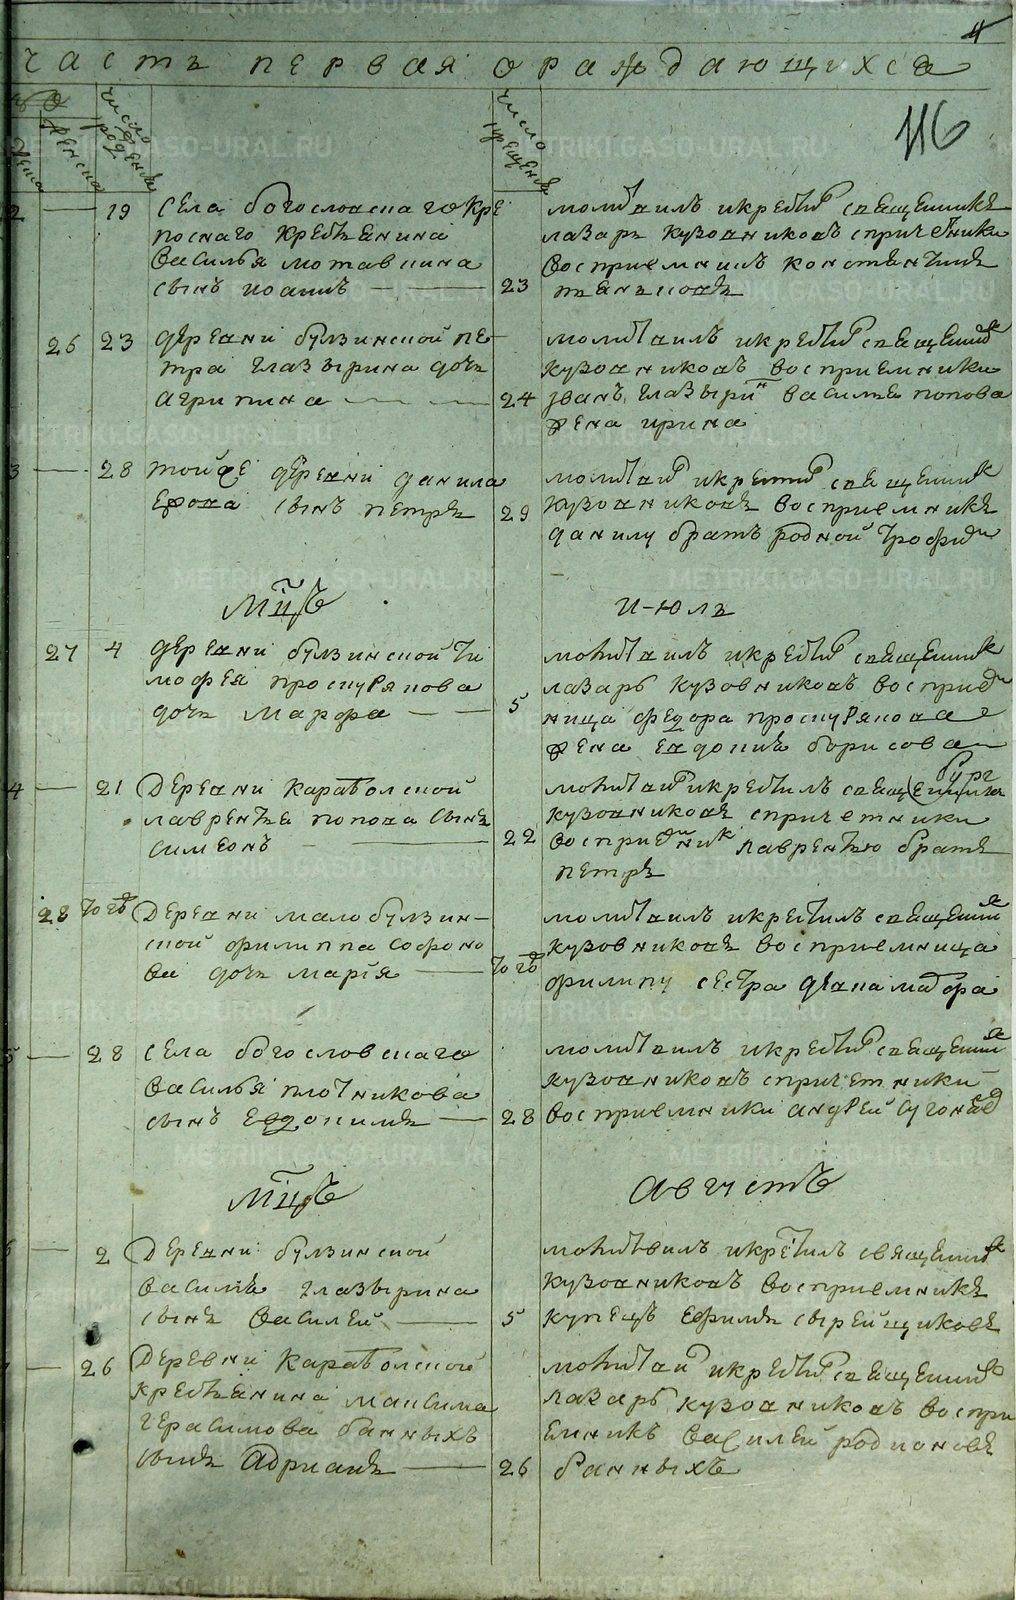 4
часть первая о раждающихся
116
число рожденія
число крещенія
женска
2 — 19 села богословскаго кре
поснаго крестьянина
василья мотавкина
сынъ иоаннъ — 23
молитвилъ икрестил священникъ
лазарь кузовниковъ спричетники
восприемникъ константинъ
26 23 деревни булзинской пе-
тра глазырина дочь
агрипина — 24
молитвилъ икрестил священник
кузовниковъ восприемники
иванъ глазырин василья попова
жена ирина
3 — 28 тойже деревни данила
сынъ петръ 29
молитвил икрестил священник
кузовниковъ восприемникъ
данилу братъ родной трофим
мцъ июль
27 4 деревни булзинской ти
мофея проскурякова
дочь марфа — 5
молитвилъ икрестил священник
лазарь кузовниковъ восприем
ница федора проскурякова
жена евдокия борисова
4 — 21 деревни караболской
лаврентья попова сынъ
симеонъ — 22
молитвил икрестилъ священникъ
кузовниковъ спричетники
восприемник лаврентью братъ
петръ
28 того деревни малобулзин-
ской филиппа софроно
ва дочь марія — того
молитвилъ икрестилъ священник
кузовниковъ восприемница
филипу сестра
5 — 28 села богословскаго
василья плотникова
сынъ евдокимъ — 28
молитвилъ икрестил священник
кузовниковъ спричетники
восприемники андрей
мцъ августъ
6 — 2 деревни булзинской
василья глазырина
сынъ василей — 5
молитвилъ икрестилъ священник
кузовниковъ восприемникъ
купецъ ефимъ сырейщиковъ
7 — 26 деревни караболской
крестьянина максима
герасимова банныхъ
сынъ адрианъ — 26
молитвил икрестил священник
лазарь кузовниковъ воспри
емникъ василей родионовъ
банныхъ
METRIKI.GASO-URAL.RU